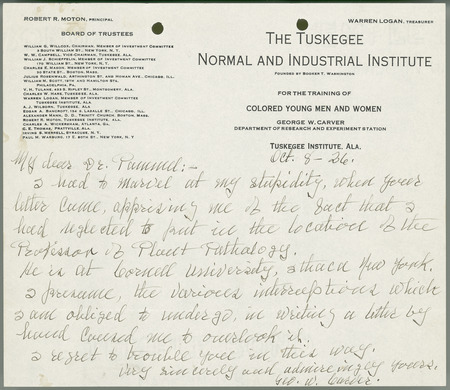 ROBERT R. MOTON, PRINCIPAL
WARREN LOGAN, TREASURER
BOARD OF TRUSTEES
WILLIAM G. WILLCOX, CHAIRMAN, MEMBER OF INVESTMENT COMMITTEE
3 SOUTH WILLIAM ST., NEW YORK, N. Y.
W. W. CAMPBELL, VICE-CHAIRMAN, TUSKEGEE, ALA.
WILLIAM J. SCHIEFFELIN, MEMBER OF INVESTMENT COMMITTEE
170 WILLIAM ST., NEW YORK, N. Y.
CHARLES E. MASON, MEMBER OF INVESTMENT COMMITTEE
50 STATE ST., BOSTON, MASS.
JULIUS ROSENWALD, ARTHINGTON ST. AND HOMAN AVE., CHICAGO, ILL.
WILLIAM M. SCOTT, 19TH AND HAMILTON STS.,
PHILADELPHIA, PA.
V. H. TULANE, 429 S. RIPLEY ST., MONTGOMERY, ALA.
CHARLES W. HARE, TUSKEGEE, ALA.
WARREN LOGAN, MEMBER OF INVESTMENT COMMITTEE
TUSKEGEE INSTITUTE, ALA.
A. J. WILBORN, TUSKEGEE, ALA.
EDGAR A. BANCROFT, 134 S. LASALLE ST., CHICAGO, ILL.
ALEXANDER MANN, D. D., TRINITY CHURCH, BOSTON, MASS.
ROBERT R. MOTON, TUSKEGEE INSTITUTE, ALA.
CHARLES A. WICKERSHAM, ATLANTA, GA.
G. E. THOMAS, PRATTVILLE, ALA.
IRVING S. MERRELL, SYRACUSE, N. Y.
PAUL M. WARBURG, 17 E. 80TH ST., NEW YORK, N. Y.
THE TUSKEGEE
NORMAL AND INDUSTRIAL INSTITUTE
FOUNDED BY BOOKER T. WASHINGTON
FOR THE TRAINING OF
COLORED YOUNG MEN AND WOMEN
GEORGE W. CARVER
DEPARTMENT OF RESEARCH AND EXPERIMENT STATION
TUSKEGEE INSTITUTE, ALA.
Oct. 8-26.
My dear Dr. Pammel:-
I had to marvel at my stupidity, when your
letter came, apprising me of the fact that I
had neglected to put in the location of the
Professor of Plant Pathology.
He is at Cornell University, Ithaca New York.
I presume, the various interceptions which
I am obliged to undergo, in writing a letter by
hand caused me to overlook it.
I regret to trouble you in this way.
Very sincerely and admiringly yours,
Geo. W. Carver.